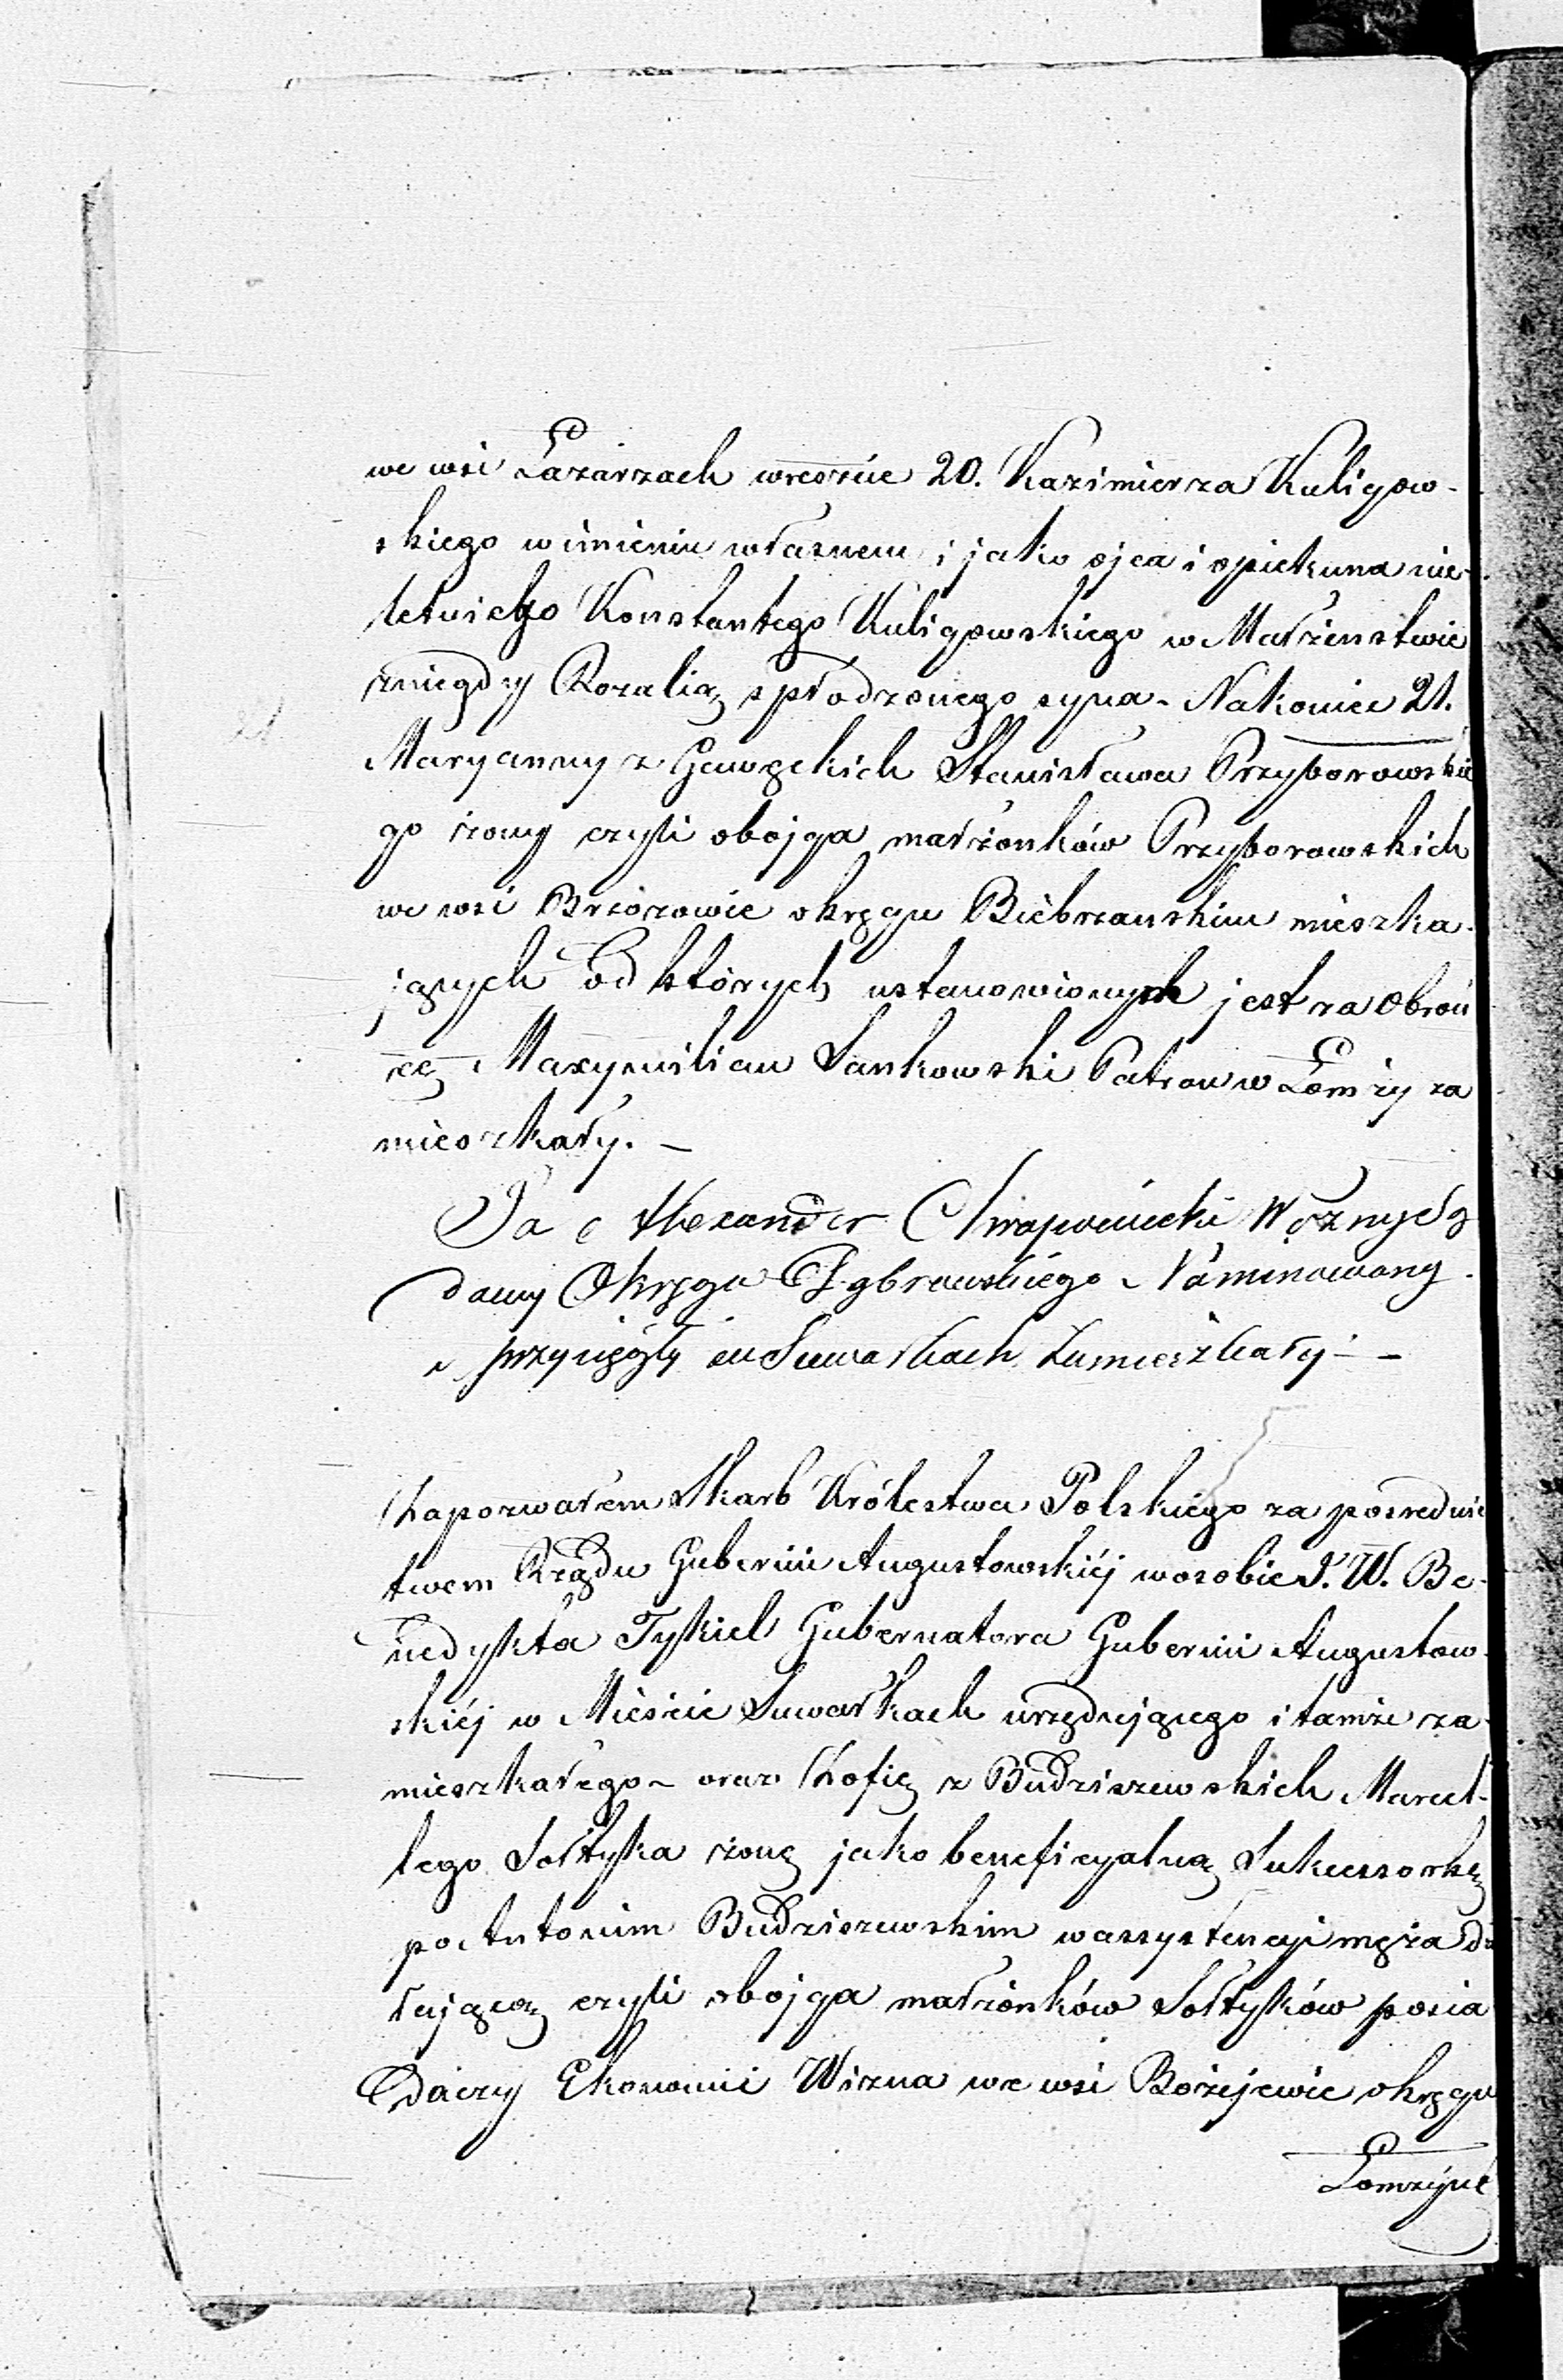 we wsi Łazarzach wreszcie 20. Kazimierza Kuligow-
skiego w imieniu własnem i jako ojca i opiekuna nie-
letniego Konstantego Kuligowskiego w Małżenstwie
zniegdy Rozalią spłodzonego syna - Nakoniec 21.
Maryanny z Gawęckich Stanisława Przyborowskie
go żony czyli obojga małżonków Przyborowskich
we wsi Brzozowie okręgu Biebrzanskim mieszka-
jących od których ustanowionym jest za Obroń
cę Maxymilian Sankowski Patron w Łomży za
mieszkały. -
Ja Alexander Woźny Są
dowy Okręgu Dąbrowskiego Naminowany
i przysięgły w Suwałkach Zamieszkały - -
Zapozwałem Skarb Królestwa Polskiego za pośrednic
twem Rządu Gubernii Augustowskiéj w osobie J. W. Be-
nedykta Tykiel Gubernatora Gubernii Augustow-
skiéj w Mieście Suwałkach urzędującego i tamże za-
mieszkałego - oraz Zofię z Budziszewskich Marcel-
lego Sołtyka żonę jako beneficyalną Sukcessorkę
po Antonim Budziszewskim w assystencyi męża dzia
łającą czyli obojga małżonków Sołtyków posia
daczy Ekonomii Wizna we wsi Bożejewie okręgu
Łomżyńs